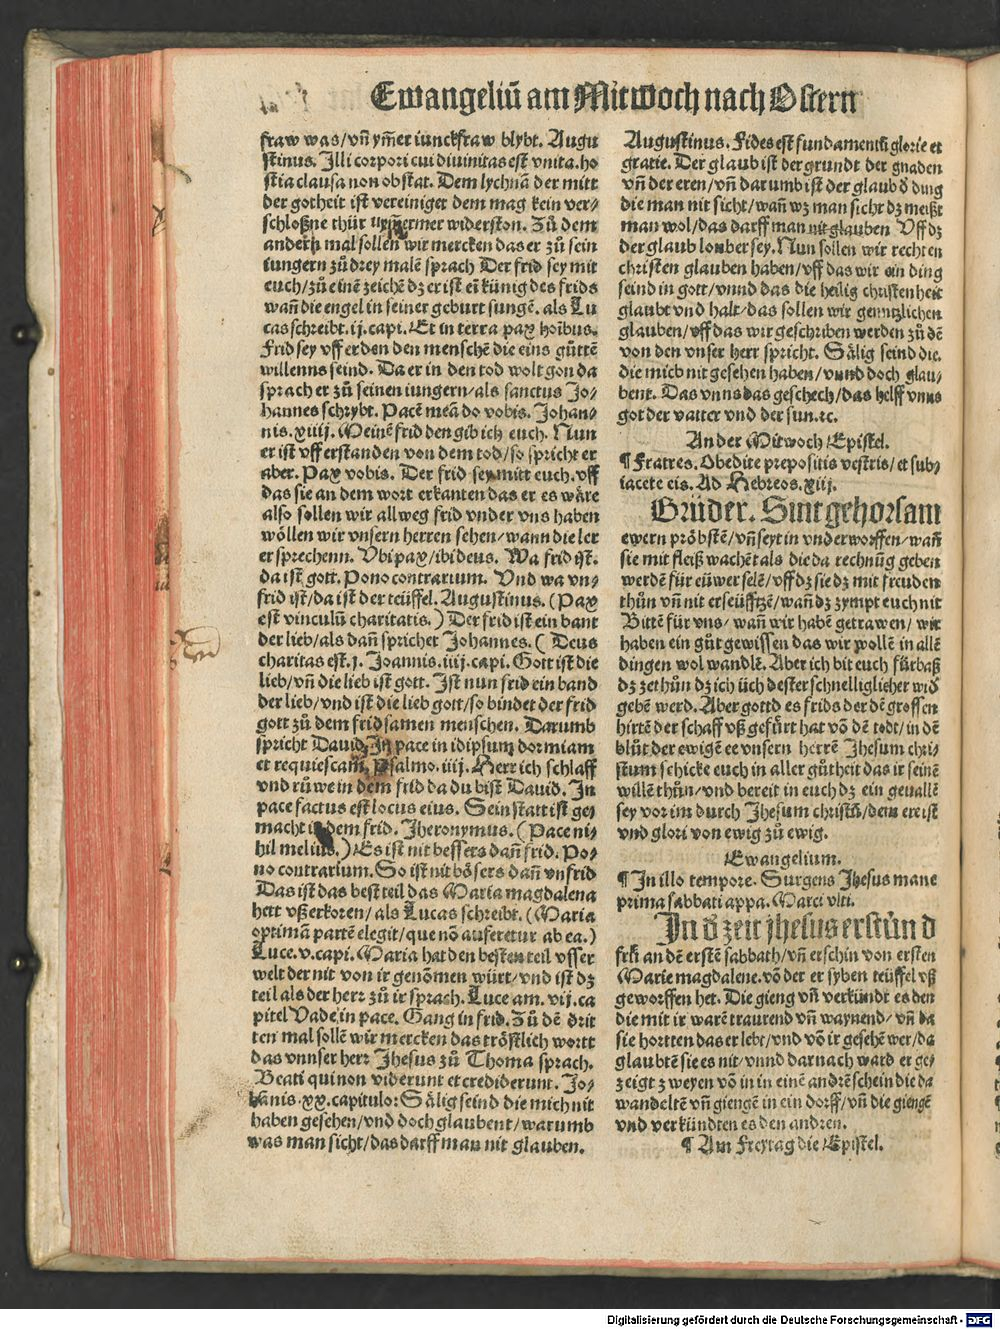 Ewangeliū am Mitwoch nach Ostern
fraw was/vñ ym̄er iunckfraw blybt. Augu
stinus. Illi corpori cui diuinitas est vnita.ho
stia clausa non obstat. Dem lychnā der mitt
der gotheit ist vereiniget dem mag kein ver⸗
schloßne thür ym̄ermer widerston. Zů dem
andern mal sollen wir mercken das er zů sein
iungern zů drey malē sprach Der frid sey mit
euch/zů einē zeichē dz er ist eī künig des frids
wañ die engel in seiner geburt sungē. als Lu
cas schreibt.ij.capi. Et in terra pax hoībus.
Frid sey vff erden den menschē die eins gůttē
willenns seind. Da er in den tod wolt gon da
sprach er zů seinen iungern/als sanctus Jo⸗
hannes schrybt. Pacē meā do vobis. Johan⸗
nis.xiiij. Meinē frid den gib ich euch. Nun
er ist vff erstanden von dem tod/so spricht er
aber. Pax vobis. Der frid sey mitt euch.vff
das sie an dem wort erkanten das er es wäre
also sollen wir allweg frid vnder vns haben
wöllen wir vnsern herren sehen/wann die ler
er sprechenn. Vbi pax/ibi deus. Wa frid ist.
da ist gott. Pono contrarium. Vnd wa vn⸗
frid ist/da ist der teüffel. Augustinus. (Pax
est vinculū charitatis.) Der frid ist ein bant
der lieb/als dañ sprichet Johannes. (Deus
charitas est.j. Joannis.iiij.capi. Gott ist die
lieb/vñ die lieb ist gott. Ist nun frid ein band
der lieb/vnd ist die lieb gott/so bindet der frid
gott zů dem fridsamen menschen. Darumb
spricht Dauid. In pace in idipsum dormiam
et requiescam, Psalmo.iiij. Herr ich schlaff
vnd růwe in dem frid da du bist Dauid. In
pace factus est locus eius. Sein statt ist ge⸗
macht in dem frid. Jheronymus. (Pace ni⸗
hil melius.) Es ist nit bessers dañ frid. Po⸗
no contrarium. So ist nit bösers dañ vnfrid
Das ist das best teil das Maria magdalena
hett vßerkoren/als Lucas schreibt. (Maria
optimā partē elegit/que nō auferetur ab ea.)
Luce.v.capi. Maria hat den besten teil vsser
welt der nit von ir genōmen würt/vnd ist dz
teil als der herr zů ir sprach. Luce am.vij.ca
pitel Vade in pace. Gang in frid. Zů dē drit
ten mal sollē wir mercken das tröstlich wortt
das vnnser herr Jhesus zů Thoma sprach.
Beati qui non viderunt et crediderunt. Jo⸗
hānis.xx.capitulo: Sälig seind die mich nit
haben gesehen/vnd doch glaubent/warumb
was man sicht/das darff man nit glauben.
Augustinus. Fides est fundamentū glorie et
gratie. Der glaub ist der grundt der gnaden
vñ der eren/vñ darumb ist der glaub d̄ ding
die man nit sicht/wañ wz man sicht dz meißt
man wol/das darff man nit glauben Vff dz
der glaub louber sey. Nun sollen wir rechten
christen glauben haben/vff das wir ein ding
seind in gott/vnnd das die heilig christenheit
glaubt vnd halt/das sollen wir gentzlichen
glauben/vff das wir geschriben werden zů dē
von den vnser herr spricht. Sälig seind die.
die mich nit gesehen haben/vnnd doch glau⸗
bent. Das vnns das geschech/das helff vnns
got der vatter vnd der sun.ꝛc.
An der Mitwoch Epistel.
¶ Fratres. Obedite prepositis vestris/et sub⸗
iacete eis. Ad Hebreos.xiij.
Brüder. Sint gehorsam
ewern pröbstē/vñ seyt in vnderworffen/wañ
sie mit fleiß wachēt als die da rechnūg geben
werdē für eüwer selē/vff dz sie dz mit freuden
thůn vñ nit erseüfftzē/wañ dz zympt euch nit
Bittē für vns/wañ wir habē getrawen/wir
haben ein gůt gewissen das wir wollē in allē
dingen wol wandlē. Aber ich bit euch fürbaß
dz zethůn dz ich üch dester schnelliglicher wid̄
gebē werd. Aber gott d̄ es frids der dē grossen
hirtē der schaff vß gefürt hat vō dē todt/in dē
blůt der ewigē ee vnsern herrē Jhesum chri⸗
stum schicke euch in aller gůtheit das ir seinē
willē thůn/vnd bereit in euch dz ein geuallē
sey vor im durch Jhesum christū/dem ere ist
vnd glori von ewig zů ewig.
Ewangelium.
¶ In illo tempore. Surgens Jhesus mane
prima sabbati appa. Marci vlti.
In d̄ zeit jhesus erstůnd
frů an dē erstē sabbath/vñ erschin von ersten
Marie magdalene.vō der er syben teüffel vß
geworffen het. Die gieng vñ verkündt es den
die mit ir warē traurend vñ waynend/vñ da
sie hortten das er lebt/vnd vō ir gesehē wer/da
glaubtē sie es nit/vnnd darnach ward er ge⸗
zeigt zweyen vō in in einē andrē schein die da
wandeltē vñ giengē in ein dorff/vñ die giengē
vnd verkündten es den andren.
¶ Am Freytag die Epistel.
Digitalisierung gefördert durch die Deutsche Forschungsgemeinschaft - DFG